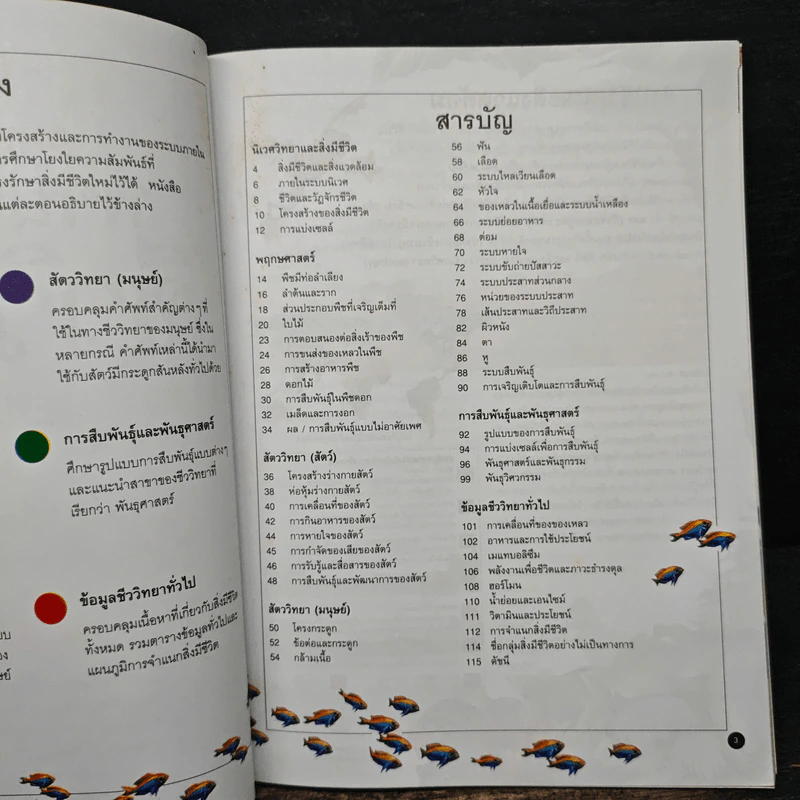 ง
โครงสร้างและการทำงานของระบบภายใน
ารศึกษาโยงใยความสัมพันธ์ที่
งรักษาสิ่งมีชีวิตใหม่ไว้ได้ หนังสือ
นแต่ละตอนอธิบายไว้ข้างล่าง
สัตววิทยา (มนุษย์)
ครอบคลุมคำศัพท์สำคัญต่างๆที่
ใช้ในทางชีววิทยาของมนุษย์ ซึ่งใน
หลายกรณี คำศัพท์เหล่านี้ได้นำมา
ใช้กับสัตว์มีกระดูกสันหลังทั่วไปด้วย
การสืบพันธุ์และพันธุศาสตร์
ศึกษารูปแบบการสืบพันธุ์แบบต่างๆ
และแนะนำสาขาของชีววิทยาที่
เรียกว่า พันธุศาสตร์
ข้อมูลชีววิทยาทั่วไป
ครอบคลุมเนื้อหาที่เกี่ยวกับสิ่งมีชีวิต
ทั้งหมด รวมตารางข้อมูลทั่วไปและ
แผนภูมิการจำแนกสิ่งมีชีวิต
ียบ
อง
ษย์
สารบัญ
นิเวศวิทยาและสิ่งมีชีวิต
4 สิ่งมีชีวิตและสิ่งแวดล้อม
6 ภายในระบบนิเวศ
8 ชีวิตและวัฏจักรชีวิต
10 โครงสร้างของสิ่งมีชีวิต
12 การแบ่งเซลล์
พฤกษศาสตร์
14 พืชมีท่อลำเลียง
16 ลำต้นและราก
18 ส่วนประกอบพืชที่เจริญเต็มที่
20 ใบไม้
23 การตอบสนองต่อสิ่งเร้าของพืช
24 การขนส่งของเหลวในพืช
26 การสร้างอาหารพืช
28 ดอกไม้
30 การสืบพันธุ์ในพืชดอก
32 เมล็ดและการงอก
34 ผล / การสืบพันธุ์แบบไม่อาศัยเพศ
สัตววิทยา (สัตว์)
36 โครงสร้างร่างกายสัตว์
38 ห่อหุ้มร่างกายสัตว์
40 การเคลื่อนที่ของสัตว์
42 การกินอาหารของสัตว์
44 การหายใจของสัตว์
45 การกำจัดของเสียของสัตว์
46 การรับรู้และสื่อสารของสัตว์
48 การสืบพันธุ์และพัฒนาการของสัตว์
สัตววิทยา (มนุษย์)
50 โครงกระดูก
52 ข้อต่อและกระดูก
54 กล้ามเนื้อ
56 ฟัน
58 เลือด
60 ระบบไหลเวียนเลือด
62 หัวใจ
64 ของเหลวในเนื้อเยื่อและระบบน้ำเหลือง
66 ระบบย่อยอาหาร
68 ต่อม
70 ระบบหายใจ
72 ระบบขับถ่ายปัสสาวะ
74 ระบบประสาทส่วนกลาง
76 หน่วยของระบบประสาท
78 เส้นประสาทและวิถีประสาท
82 ผิวหนัง
84 ตา
86 หู
88 ระบบสืบพันธุ์
90 การเจริญเติบโตและการสืบพันธุ์
การสืบพันธุ์และพันธุศาสตร์
92 รูปแบบของการสืบพันธุ์
94 การแบ่งเซลล์เพื่อการสืบพันธุ์
96 พันธุศาสตร์และพันธุกรรม
99 พันธุวิศวกรรม
ข้อมูลชีววิทยาทั่วไป
101 การเคลื่อนที่ของของเหลว
102 อาหารและการใช้ประโยชน์
104 เมแทบอลิซึม
106 พลังงานเพื่อชีวิตและภาวะธำรงดุล
108 ฮอร์โมน
110 น้ำย่อยและเอนไซม์
111 วิตามินและประโยชน์
112 การจำแนกสิ่งมีชีวิต
114 ชื่อกลุ่มสิ่งมีชีวิตอย่างไม่เป็นทางการ
115 ดัชนี
3